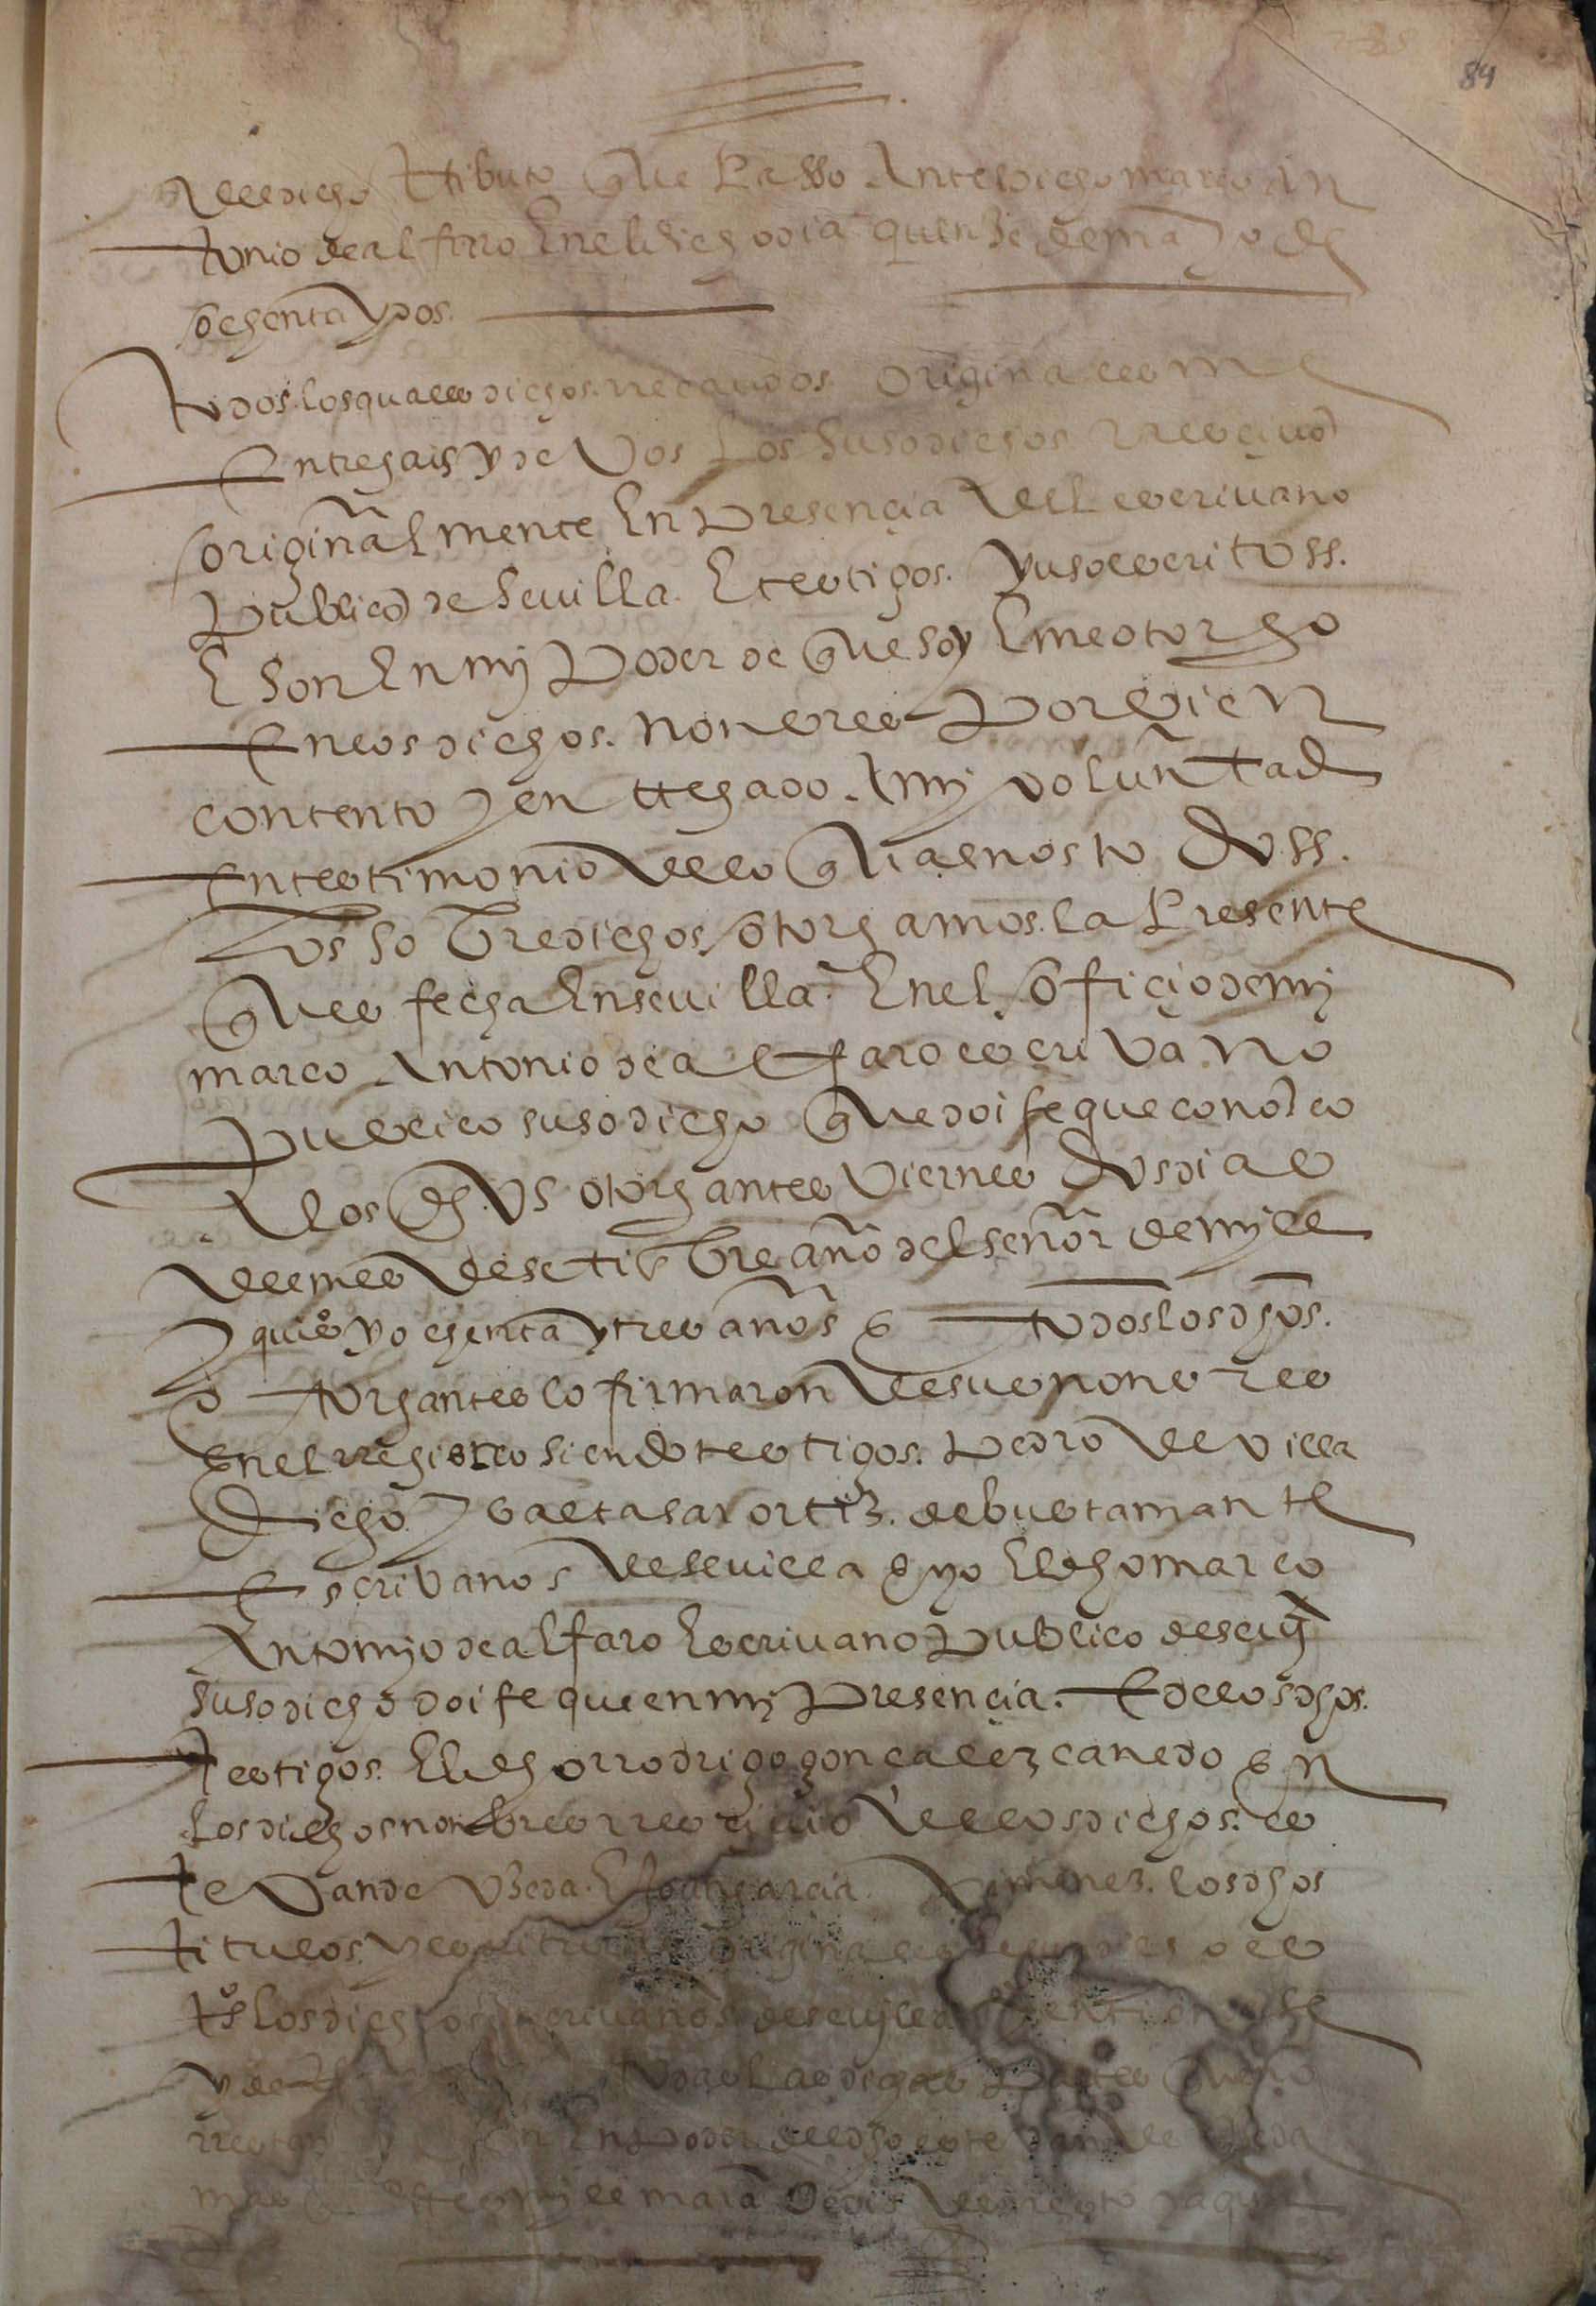 84
del dicho tributo que passo ante el dicho marco an
tonio de alfaro En el dicho dia quinze de mayo de
ochenta y dos.
todos los quales dichos rrecaudos originales me
Entregais y de Vos los susodichos rrescivo
originalmente En presençia del escrivano
publico de sevilla E testigos yuso escritos
E son En mi poder de que soy E me otorgo
En los dichos nonbres por bien
contento y entregado a mi voluntad
En testimonio dello que a nos to dos
los sobredichos otorgamos la presente
que es fecha En sevilla En el officio de mi
marco Antonio de alfaro escrivano
publico susodicho que doi fe que conozco
a los dhos otorgantes viernes dos dias
del mes de setiembre año del señor de mill
y quis y ochenta y tres años e todos los dhos
otorgantes lo firmaron de sus nonbres
En el rregistro siendo testigos pedro de villa
Diego y baltasar ortiz de bustamante
Escrivanos de sevilla e yo El dho marco
Antonyo de alfaro Escrivano publico de seuia
susodicho doi fe que en mi presençia E de los dhos
testigos El dho rrodrigo gonçalez canedo en
los dichos nonbres rrescivio de los dichos es
tevan de Vbeda E garcia Ximenez los dhos
titulos y escrituras originales
tos los dichos escrivanos de sevilla
todas las dichas partes
En poder del dho estevan de